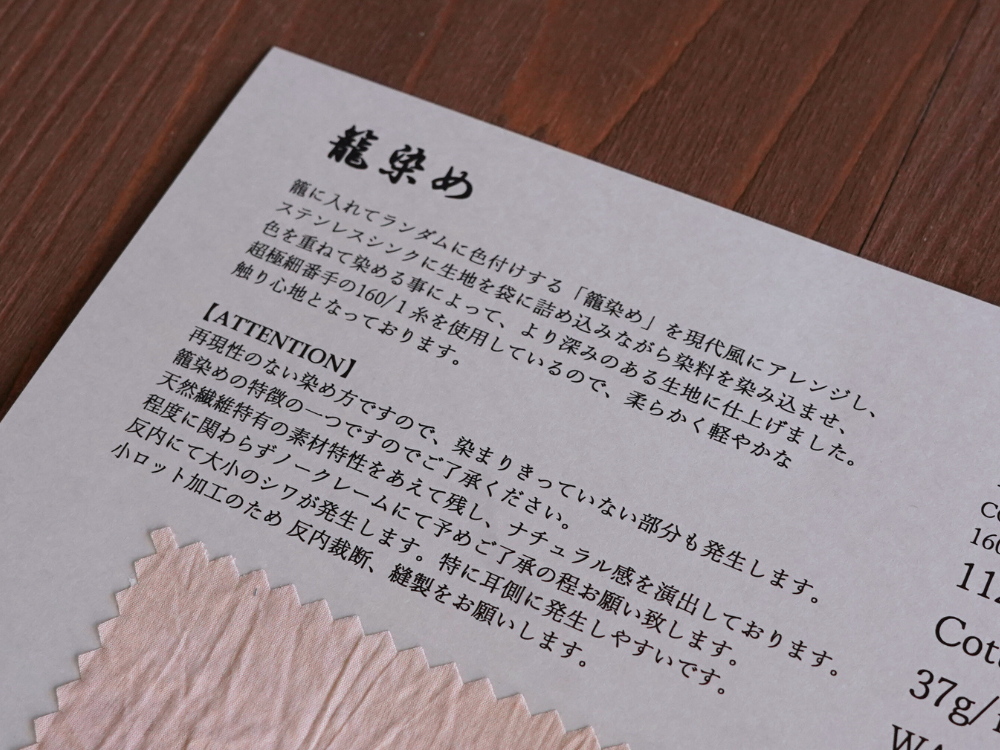 籠染め
籠に入れてランダムに色付けする「籠染め」を現代風にアレンジし、
ステンレスシンクに生地を袋に詰め込みながら染料を染み込ませ、
色を重ねて染める事によって、より深みのある生地に仕上げました。
超極細番手の160/1糸を使用しているので、柔らかく軽やかな
触り心地となっております。
【ATTENTION】
再現性のない染め方ですので、染まりきっていない部分も発生します。
籠染めの特徴の一つですのでご了承ください。
天然繊維特有の素材特性をあえて残し、ナチュラル感を演出しております。
程度に関わらずノークレームにて予めご了承の程お願い致します。
反内にて大小のシワが発生します。特に耳側に発生しやすいです。
小ロット加工のため 反内裁断、縫製をお願いします。
160
112
Cott
37g/